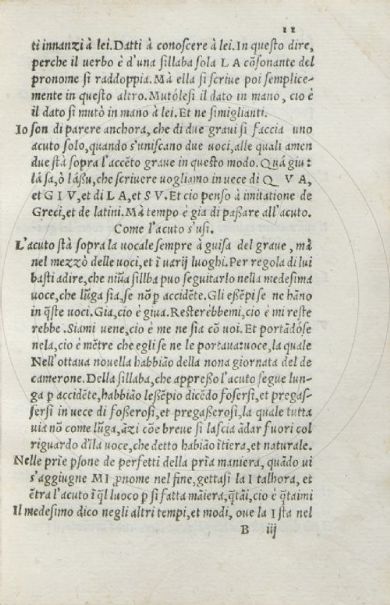 11
ti innanzi à lei. Datti à conoscere à lei. In questo dire,
perche il uerbo è d'una sillaba sola L A cõsonante del
pronome si raddoppia. Mà ella si scriue poi semplice-
mente in questo altro. Mutólesi il dato in mano, cio è
il dato si mutò in mano à lei. Et ne simiglianti.
Io son di parere anchora, che di due graui si faccia uno
acuto solo, quando s'uniscano due uoci, alle quali amen
due stà sopra l'accẽto graue in questo modo. Quá giu:
lá sa, ò lásu, che scriuere uogliamo in uece di Q V A,
et G I V, et di L A, et S V. Et cio penso à imitatione de
Greci, et de latini. Mà tempo è gia di passare all'acuto.
Come l'acuto s'usi.
L'acuto stà sopra la uocale sempre à guisa del graue, mà
nel mezzò delle uoci, et ĩ uarij luoghi. Per regola di lui
basti adire, che niũa sillba puo seguitarlo nella medesima
uoce, che lũga sia, se nõ p accidẽte. Gli essẽpi se ne hãno
in q̃ste uoci. Gia, cio è giua. Resterébbemi, cio è mi reste
rebbe. Siami uene, cio è me ne sia cõ uoi. Et portãdóse
nela, cio è mẽtre che egli se ne le portaua: uoce, la quale
Nell'ottaua nouella habbião della nona giornata del de
camerone. Della sillaba, che appresso l'acuto segue lun-
ga p accidẽte, habbião lessẽpio dicẽdo fosersi, et pregas-
sersi in uece di fosserosi, et pregasserosi, la quale tutta
uia nõ come lũga, ãzi cõe breue si lascia ãdar fuori col
riguardo dĩla uoce, che detto habbião ĩtiera, et naturale.
Nelle prĩe psone de perfetti della prĩa maniera, quãdo ui
s'aggiugne MI pnome nel fine, gettasi la I talhora, et
ẽtra l'acuto ĩ q̃l luoco p si fatta mãiera, q̃tãi, cio è q̃taimi
Il medesimo dico negli altri tempi, et modi, oue la I sta nel
B iij